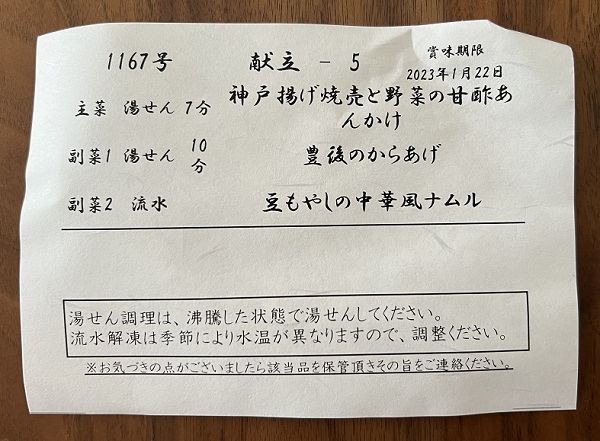 1167号 献立 － 5 賞味期限
2023年1月22日
主菜 湯せん 7分 神戸揚げ焼売と野菜の甘酢あ
んかけ
副菜1 湯せん 10
分 豊後のからあげ
副菜2 流水 豆もやしの中華風ナムル
湯せん調理は、沸騰した状態で湯せんしてください。
流水解凍は季節により水温が異なりますので、調整ください。
※お気づきの点がございましたら該当品を保管頂きその旨をご連絡ください。